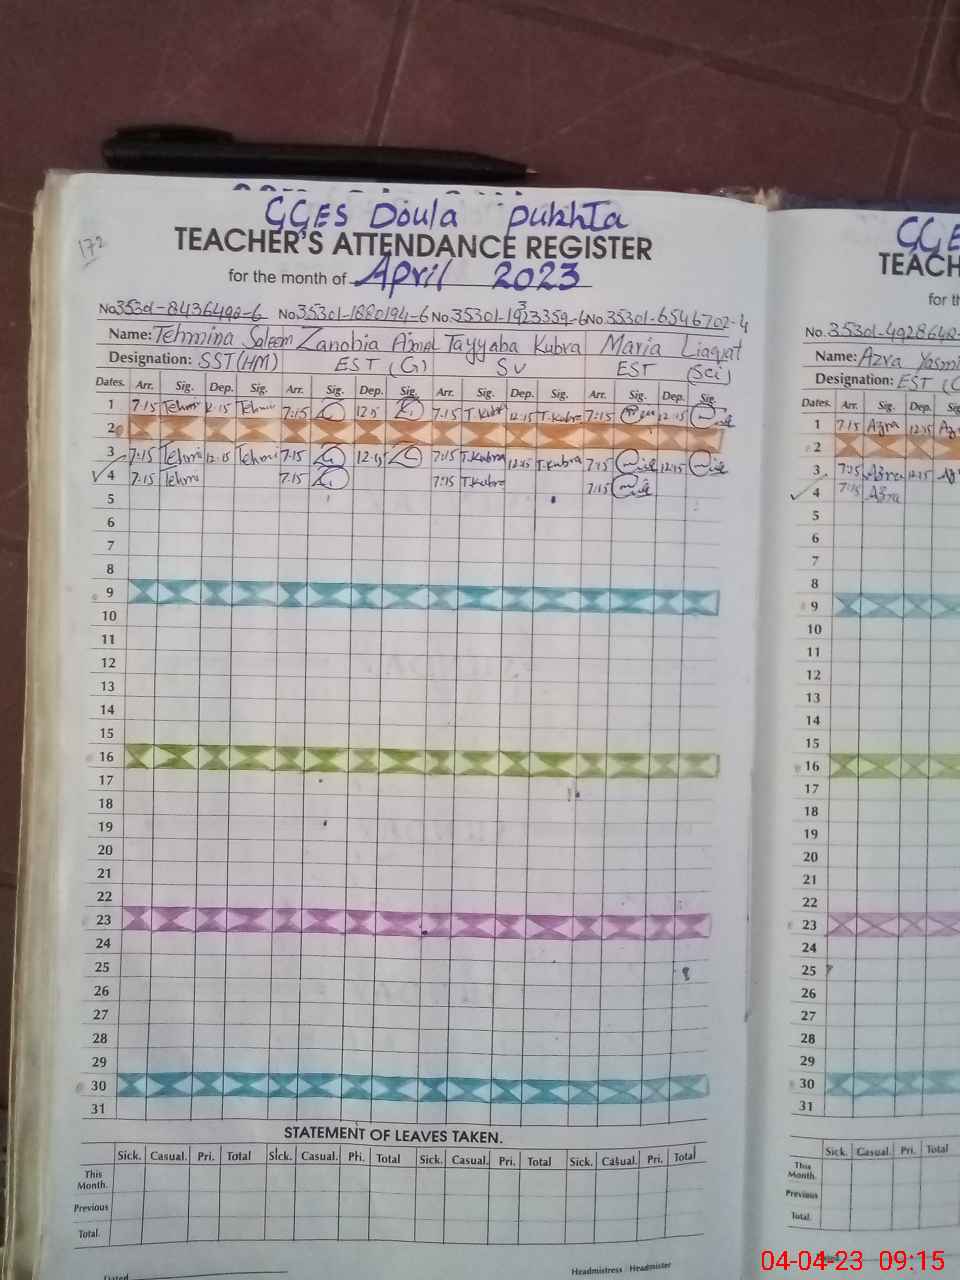 GGES Doula pukhta
172
TEACHER'S ATTENDANCE REGISTER
for the month of April 2023
No 35301-8436490-6 No 35301-1880194-6 No. 35301-1923359-6 No 35301-6546702-4
Name: Tehmina Saleem Zanobia Ajmal Tayyaba Kubra Maria Liaquat
Designation: SST(HM) EST (G) SV EST (Sci)
Dates. Arr. Sig. Dep. Sig. Arr. Sig. Dep. Sig. Arr. Sig. Dep. Sig. Arr. Sig. Dep. Sig.
1 7:15 Tehmi 12:15 Tehmi 7:15 12:15 7:15 T.Kubra 12:15 T.Kubra 7:15 12:15
2
3 7:15 Tehmi 12:15 Tehmi 7:15 12:15 7:15 T.Kubra 12:15 T.Kubra 7:15 12:15
4 7:15 Tehmi 7:15 7:15 T.Kubra 7:15
5
6
7
8
9
10
11
12
13
14
15
16
17
18
19
20
21
22
23
24
25
26
27
28
29
30
31
STATEMENT OF LEAVES TAKEN.
Sick. Casual. Pri. Total Sick. Casual. Pri. Total Sick. Casual. Pri. Total Sick. Casual. Pri. Total
This Month.
Previous
Total.
Dated
Headmistress / Headmaster
GGE
TEACH
for th
No. 35301-4928648-
Name: Azra Yasmi
Designation: EST (
Dates. Arr. Sig. Dep. Sig.
1 7:15 Azra 12:15 Az
2
3 7:15 Azra 12:15 Az
4 7:15 Azra
5
6
7
8
9
10
11
12
13
14
15
16
17
18
19
20
21
22
23
24
25
26
27
28
29
30
31
Sick. Casual. Pri. Total
This Month.
Previous
Total.
04-04-23 09:15